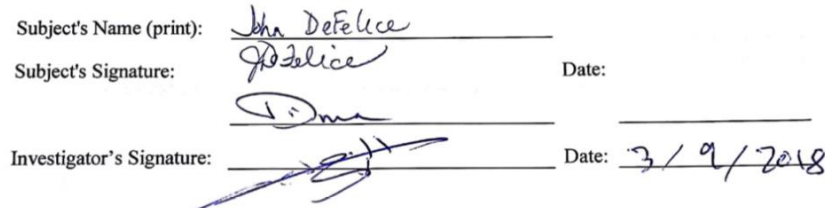 Subject's Name (print): John DeFelice
Subject's Signature: JDeFelice Date:
Investigator's Signature: Date: 3/9/2018